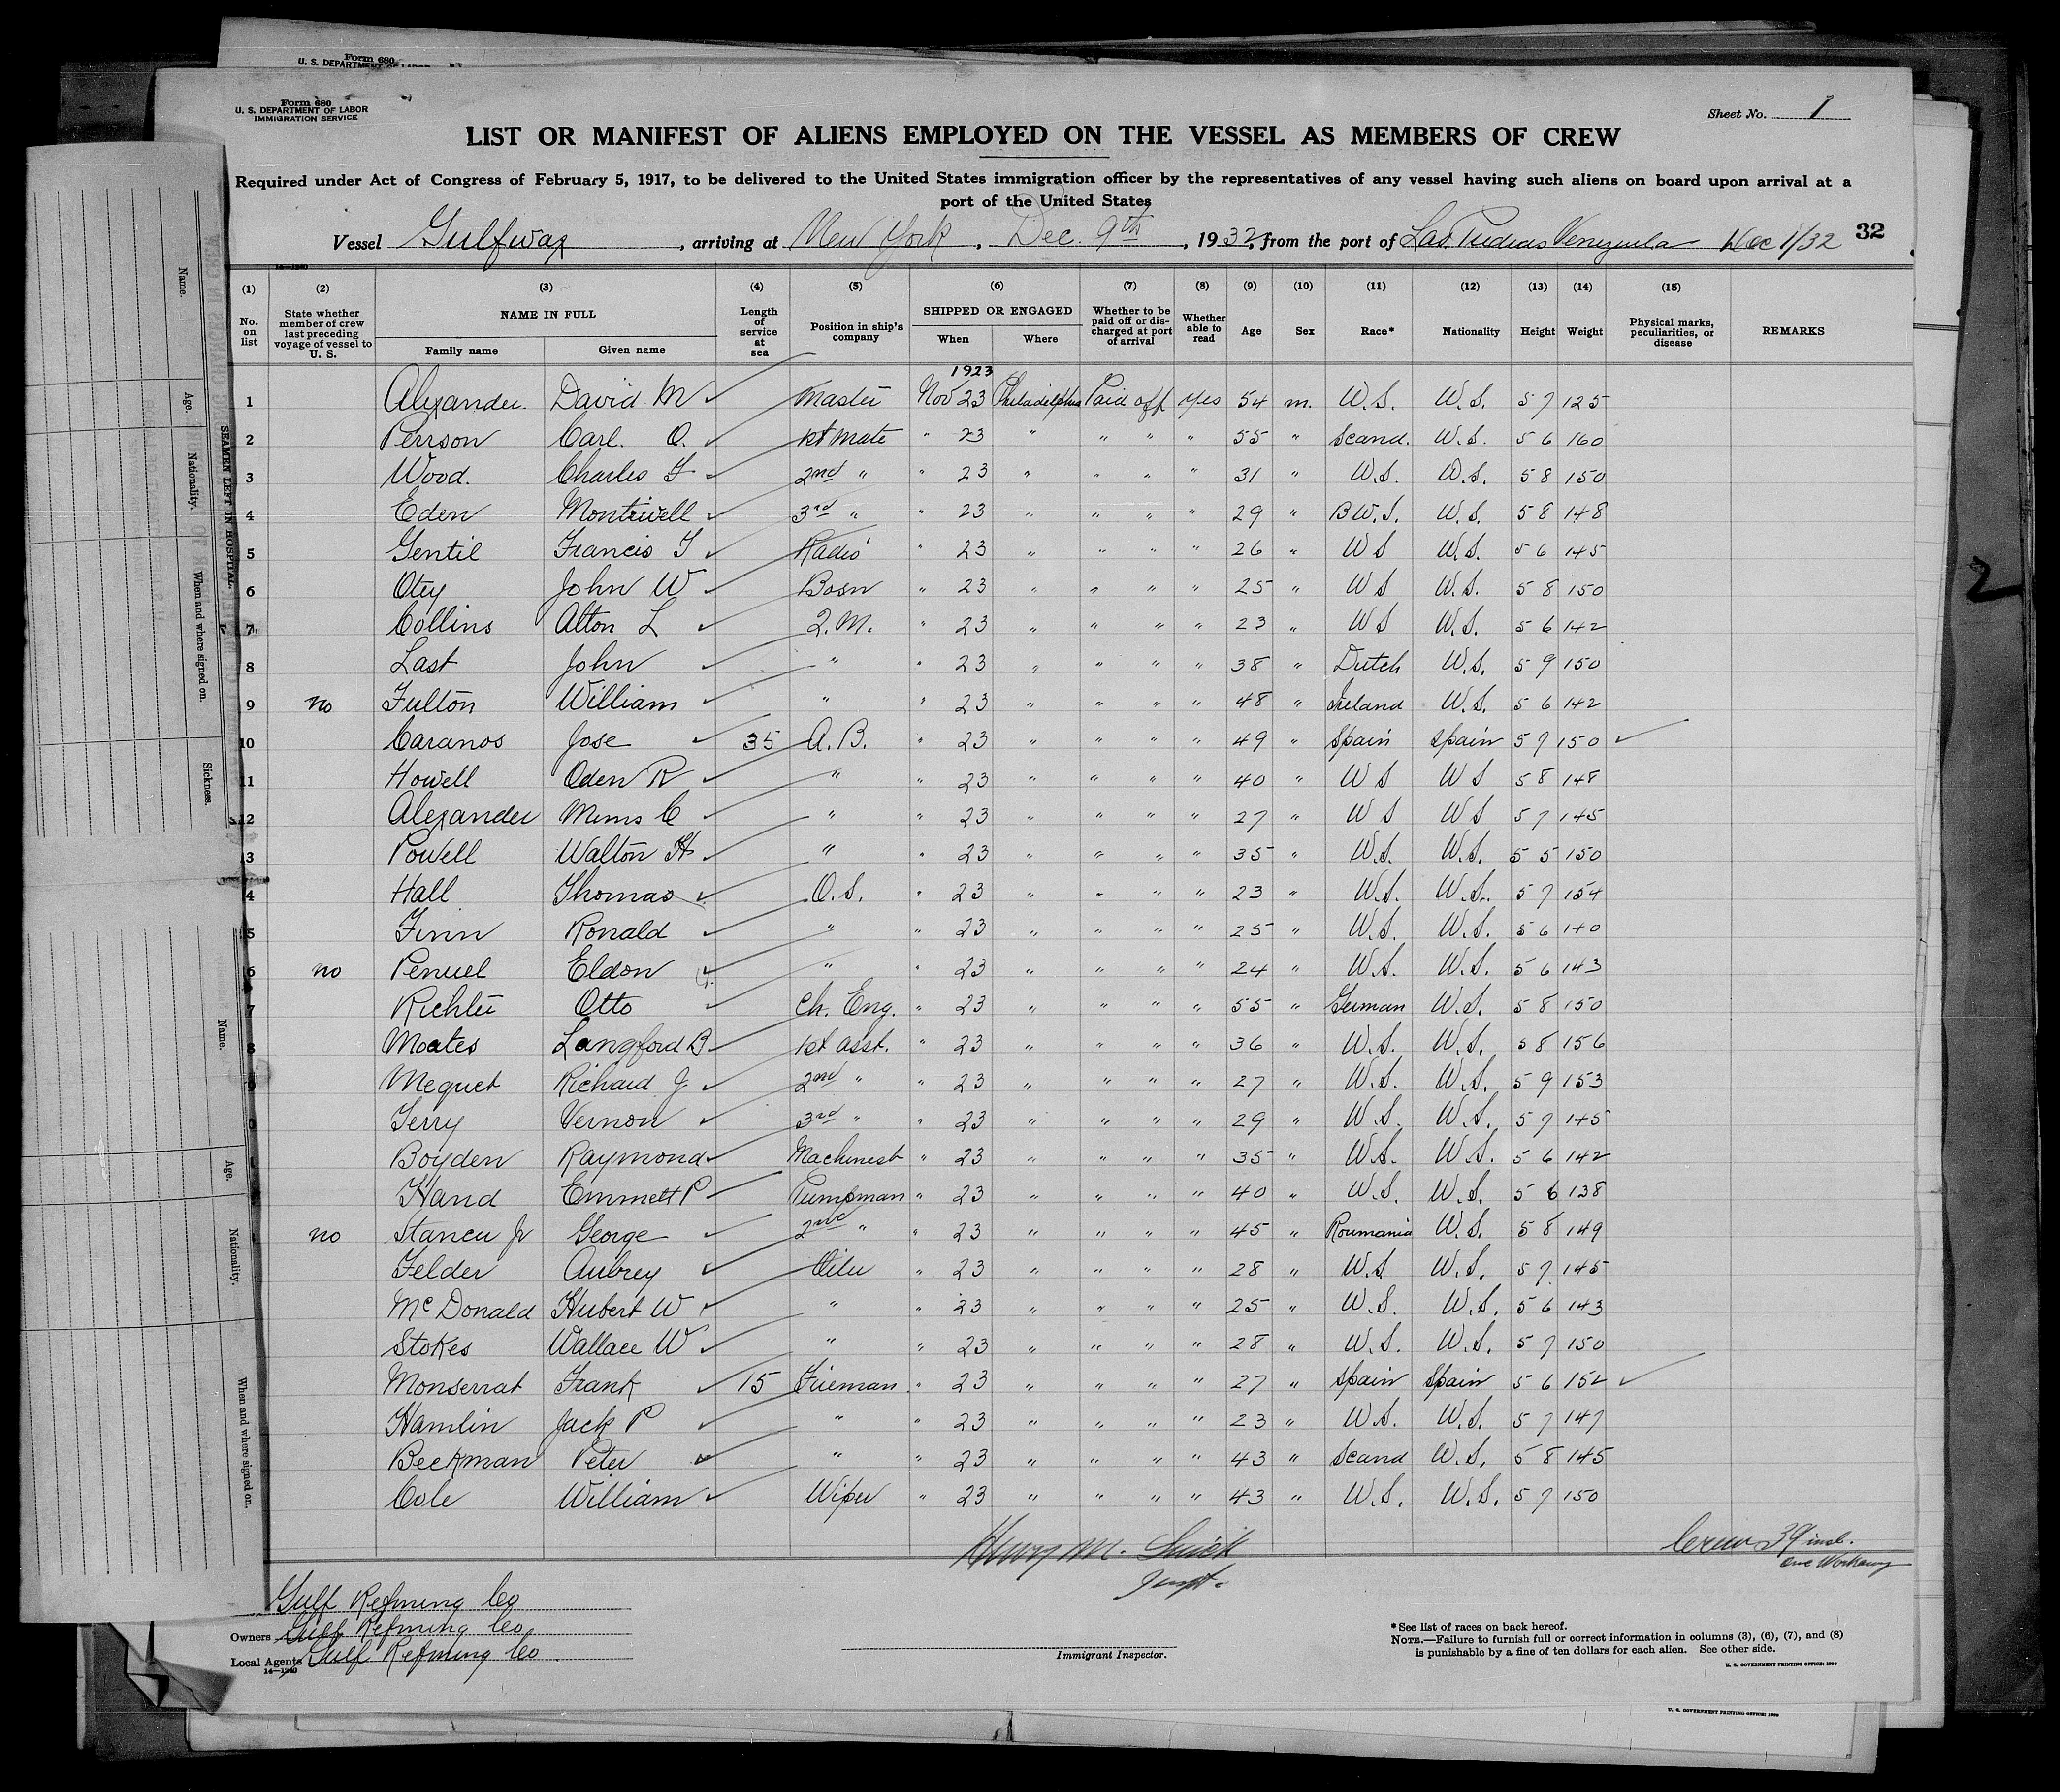 Form 680
U. S. DEPARTMENT OF LABOR
Form 680
U. S. DEPARTMENT OF LABOR
IMMIGRATION SERVICE
Sheet No. 1
LIST OR MANIFEST OF ALIENS EMPLOYED ON THE VESSEL AS MEMBERS OF CREW
Required under Act of Congress of February 5, 1917, to be delivered to the United States immigration officer by the representatives of any vessel having such aliens on board upon arrival at a
port of the United States
Vessel Gulfwax, arriving at New York, Dec. 9th, 1932, from the port of Las Piedras Venezuela Dec 1/32 32
14—1940
(1) (2) (3) (4) (5) (6) (7) (8) (9) (10) (11) (12) (13) (14) (15)
No. on list State whether member of crew last preceding voyage of vessel to U. S. NAME IN FULL Family name Given name Length of service at sea Position in ship's company SHIPPED OR ENGAGED When Where Whether to be paid off or discharged at port of arrival Whether able to read Age Sex Race* Nationality Height Weight Physical marks, peculiarities, or disease REMARKS
1923
1 Alexander. David M ✓ Master Nov 23 Philadelphia Paid off yes 54 m. U.S. U.S. 5 7 125
2 Perrson Carl. O. ✓ 1st Mate " 23 " " " " 55 " Scand. U.S. 5 6 160
3 Wood. Charles F ✓ 2nd " " 23 " " " " 31 " U.S. U.S. 5 8 150
4 Eden Montiwell ✓ 3rd " " 23 " " " " 29 " B.W.I. U.S. 5 8 148
5 Gentil Francis J ✓ Radio " 23 " " " " 26 " U S U.S. 5 6 145
6 Otey John W ✓ Bosn " 23 " " " " 25 " U S U.S. 5 8 150
7 Collins Alton L ✓ Q.M. " 23 " " " " 23 " U S U.S. 5 6 142
8 Last John ✓ " " 23 " " " " 38 " Dutch U.S. 5 9 150
9 no Fulton William ✓ " " 23 " " " " 48 " Ireland U.S. 5 6 142
10 Caranos Jose ✓ 35 A.B. " 23 " " " " 49 " Spain Spain 5 7 150 ✓
11 Howell Oden R ✓ " " 23 " " " " 40 " U S U S 5 8 148
12 Alexander Mims C ✓ " " 23 " " " " 27 " U S U S 5 7 145
3 Powell Walton H ✓ " " 23 " " " " 35 " U.S. U.S. 5 5 150
4 Hall Thomas ✓ O.S. " 23 " " " " 23 " U.S. U.S. 5 7 154
5 Finn Ronald ✓ " " 23 " " " " 25 " U.S. U.S. 5 6 140
6 no Penuel Eldon ✓ " " 23 " " " " 24 " U.S. U.S. 5 6 143
7 Richter Otto ✓ Ch. Eng. " 23 " " " " 55 " German U.S. 5 8 150
8 Moates Langford B ✓ 1st asst. " 23 " " " " 36 " U.S. U.S. 5 8 156
Mequet Richard J ✓ 2nd " " 23 " " " " 27 " U.S. U.S. 5 9 153
Terry Vernon ✓ 3rd " " 23 " " " " 29 " U.S. U.S. 5 7 145
Boyden Raymond ✓ Machinest " 23 " " " " 35 " U.S. U.S. 5 6 142
Hand Emmett P ✓ Pumpman " 23 " " " " 40 " U.S. U.S. 5 6 138
no Stancu Jr George ✓ 2nd " " 23 " " " " 45 " Roumania U.S. 5 8 149
Felder Aubrey ✓ Oiler " 23 " " " " 28 " U.S. U.S. 5 7 145
McDonald Hubert W ✓ " " 23 " " " " 25 " U.S. U.S. 5 6 143
Stokes Wallace W ✓ " " 23 " " " " 28 " U.S. U.S. 5 7 150
Monserrat Frank ✓ 15 Fireman " 23 " " " " 27 " Spain Spain 5 6 152 ✓
Hamlin Jack P ✓ " " 23 " " " " 23 " U.S. U.S. 5 7 147
Beckman Peter ✓ " " 23 " " " " 43 " Scand U.S. 5 8 145
Cole William ✓ Wiper " 23 " " " " 43 " U.S. U.S. 5 7 150
Henry M.
Inspt.
Crew 39 incl.
one Workaway
Gulf Refining Co
Owners Gulf Refining Co.
Local Agents Gulf Refining Co
14—1940
Immigrant Inspector.
*See list of races on back hereof.
NOTE.—Failure to furnish full or correct information in columns (3), (6), (7), and (8)
is punishable by a fine of ten dollars for each alien. See other side.
U. S. GOVERNMENT PRINTING OFFICE:
U. S. GOVERNMENT PRINTING OFFICE:
2
SEAMEN LEFT IN HOSPITAL.
Name.
Age.
Nationality.
When and where signed on.
Sickness.
Name.
Age.
Nationality.
When and where signed on.